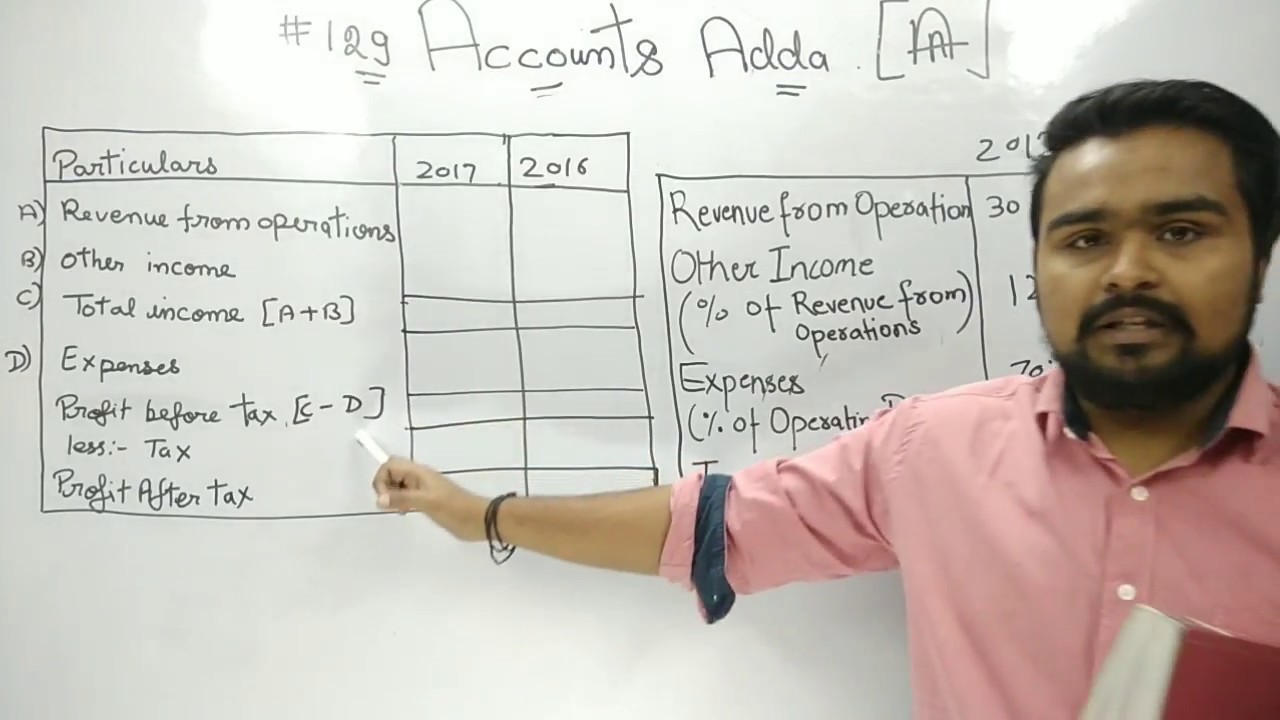 #129 Accounts Adda. [AA]
Particulars 2017 2016
A) Revenue from operations
B) other income
C) Total income [A+B]
D) Expenses
Profit before tax [C-D]
less:- Tax
Profit After tax
Revenue from Operation 30
Other Income
(% of Revenue from 12
Operations)
Expenses
(% of